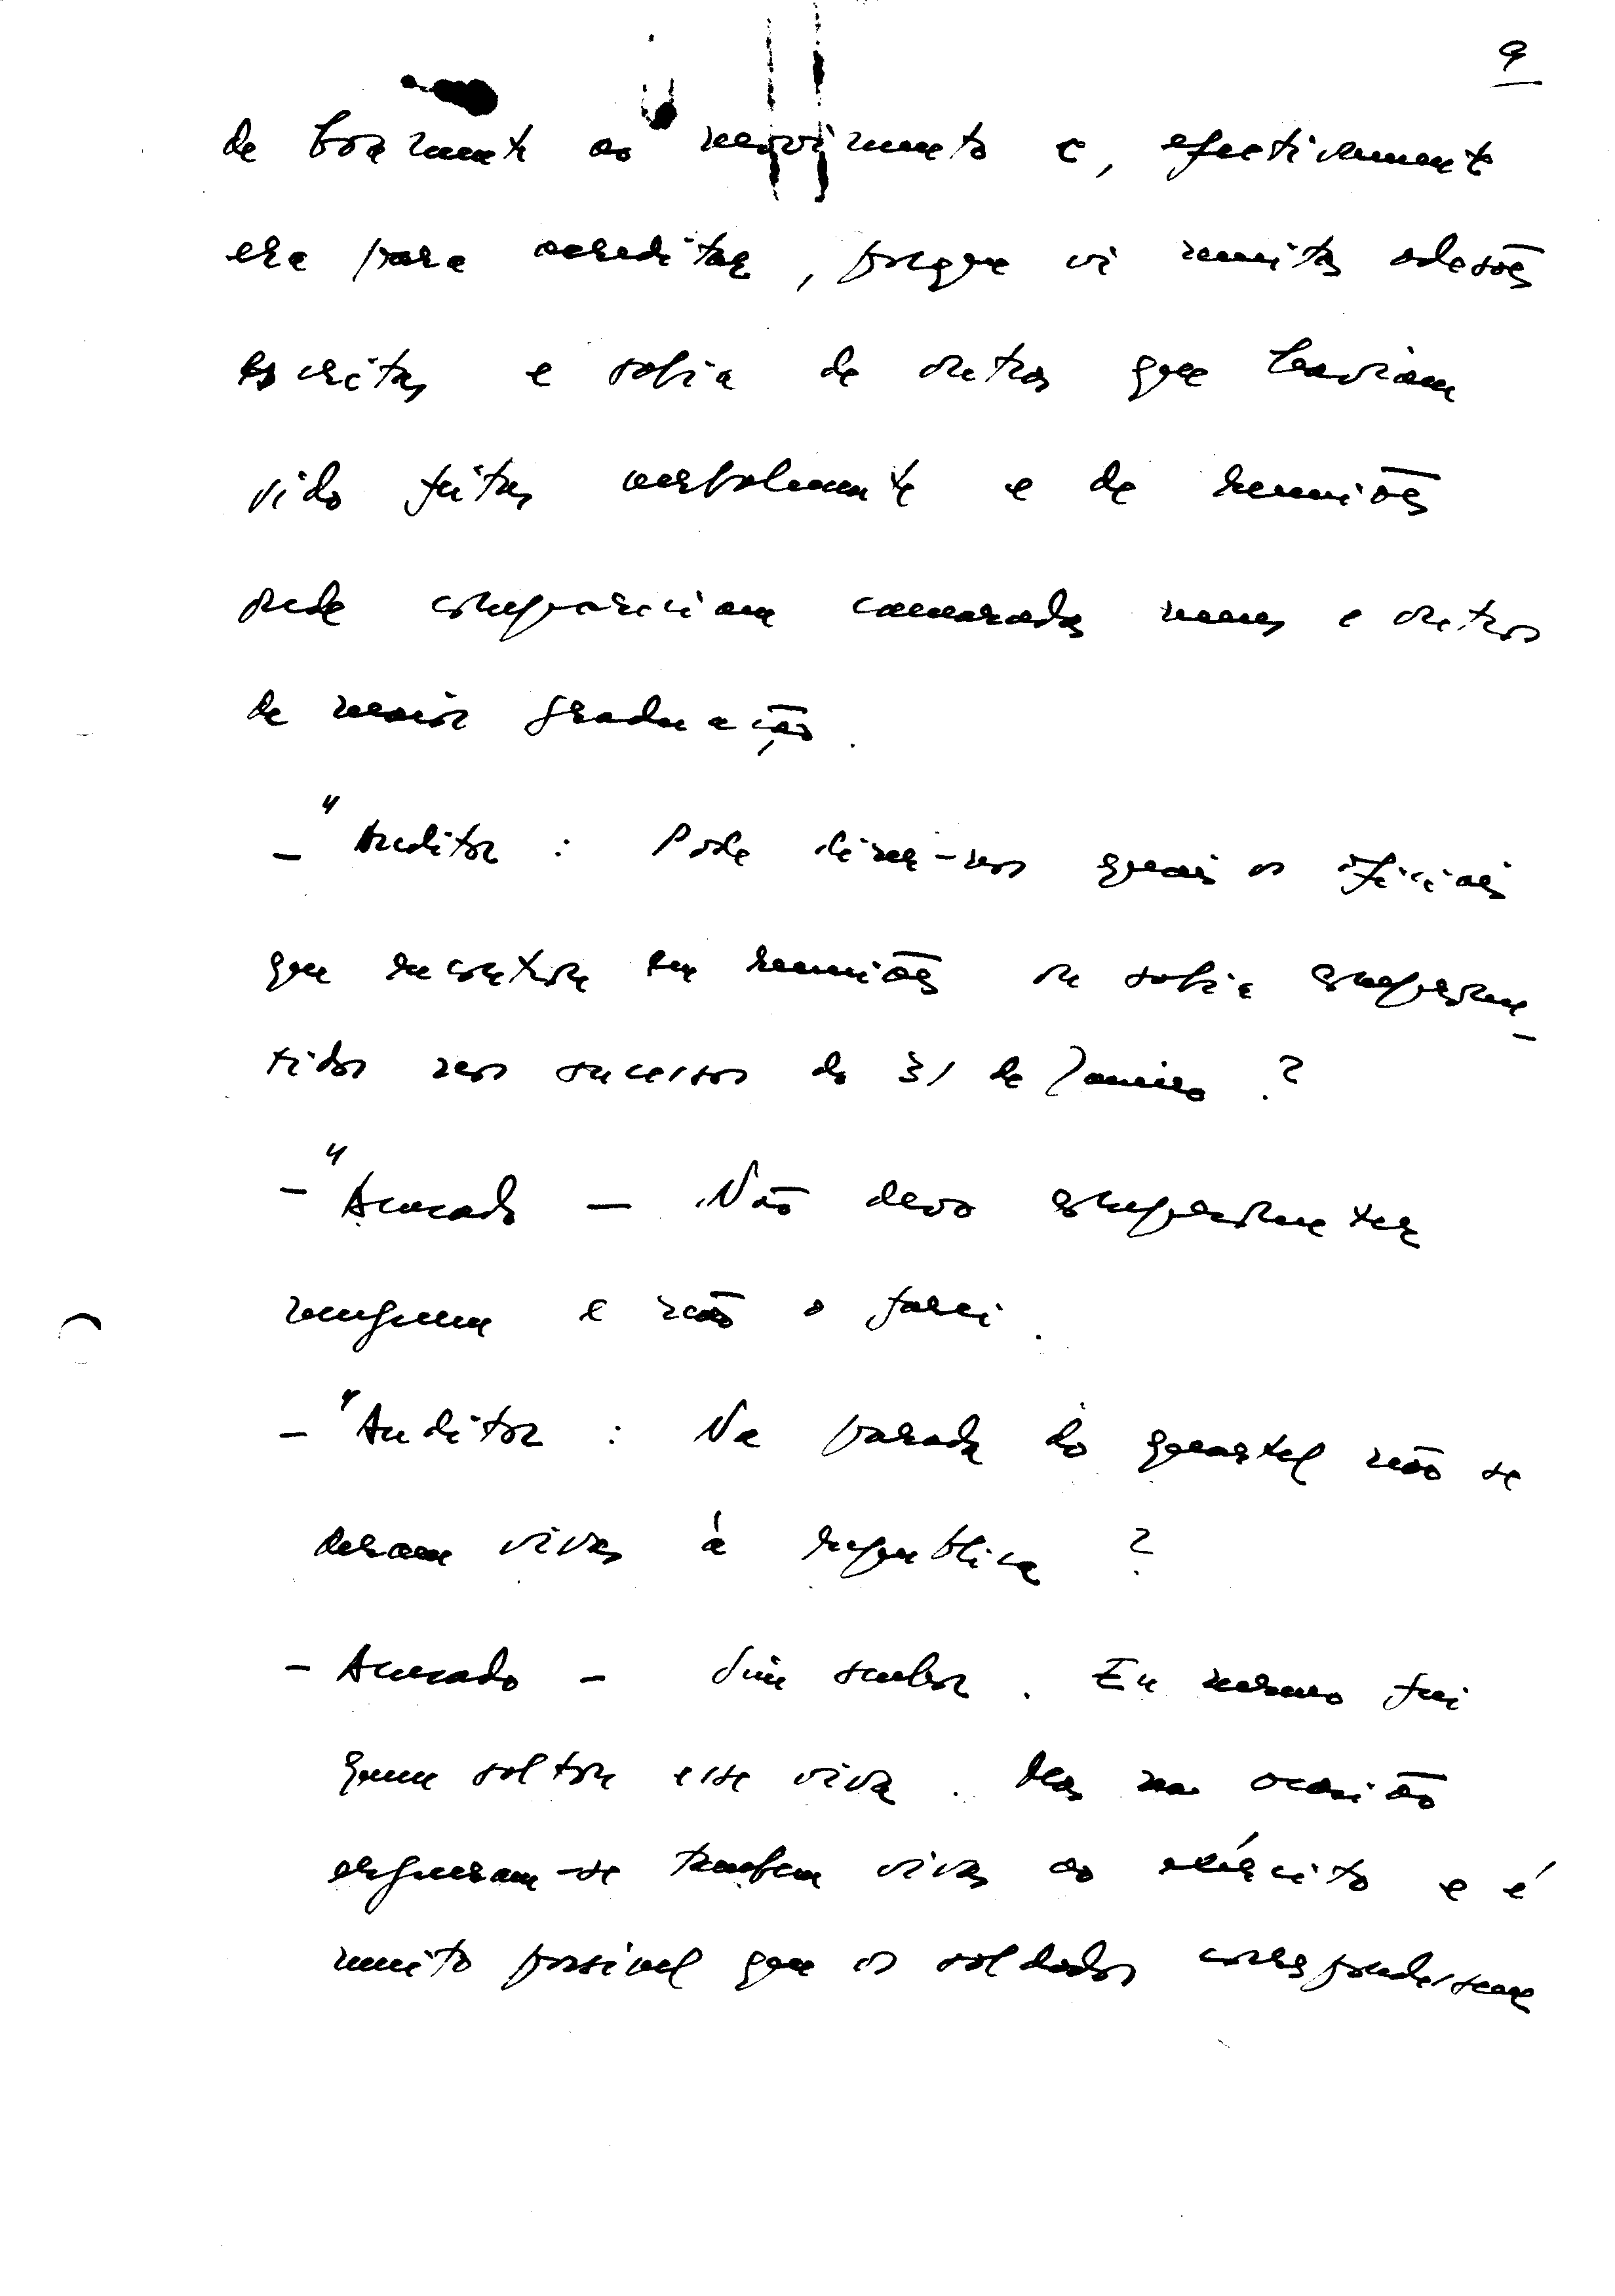 9
de boa mente ao movimento e, efectivamente
era para acreditar, porque vi muitas adesões
escritas e sabia de outras que haviam
sido feitas verbalmente e de reuniões
onde compareciam camaradas meus e outros
de maior graduação.
– "Auditor : Pode dizer-nos quais os oficiais
que encontrou em reuniões ou sabia comprome-
tidos nos sucessos do 31 de Janeiro ?
– "Acusado – Não devo comprometer
ninguem e não o farei.
– "Auditor : Na parada do quartel não se
deram vivas à republica ?
– Acusado – Sim senhor. Eu mesmo fui
quem soltou esse viva. Mas na ocasião
ergueram-se tambem vivas ao exército e é
muito possivel que os soldados correspondessem